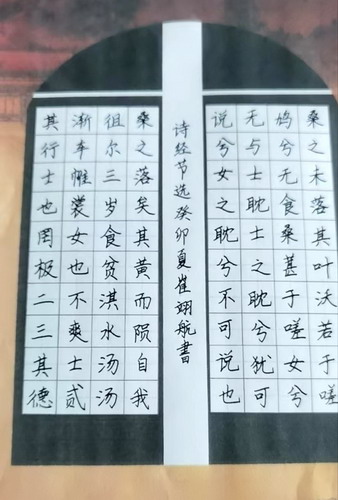 桑之未落其叶沃若于嗟
鸠兮无食桑葚于嗟女兮
无与士耽士之耽兮犹可
说兮女之耽兮不可说也
诗经节选癸卯夏崔翊航書
桑之落矣其黄而陨自我
徂尔三岁食贫淇水汤汤
渐车帷裳女也不爽士贰
其行士也罔极二三其德